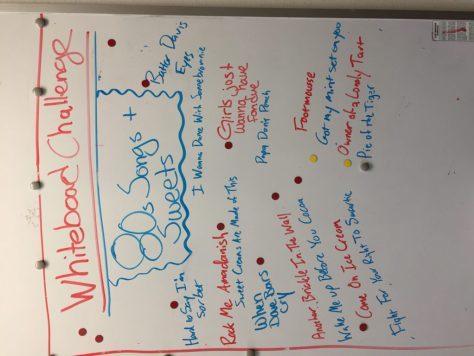 Whiteboard Challenge
80s Songs +
Sweets
Butter Davis
Eyes
Hard to Say I'm
Sorbet
I Wanna Dance With Somebrownie
Rock Me Amadanish
Sweet Creams Are Made of This
Girls just
wanna have
fondue
When
Dove Bars
Cry
Papa Don't Peach
Another Brickle In The Wall
Footmousse
Wake Me up Before You Cocoa
Got My Mint Set on you
Come On Ice Cream
Owner of a Lonely Tart
Fight For Your Right To
Pie of the Tiger